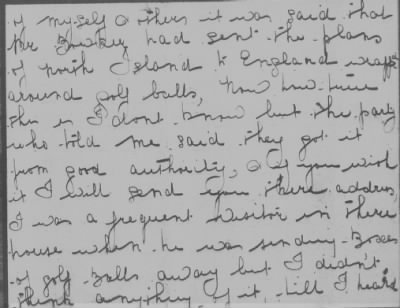 of myself & others it was said that
Mr Bowker had sent the plans
of north Island to England wrapt
around golf balls, now how true
this is I dont know but the party
who told me said they got it
from good authority, & if you wish
it I will send you there address,
I was a frequent visitor in there
house when he was sending Boxes
of golf Balls away but I didn't
think anything of it till I heard